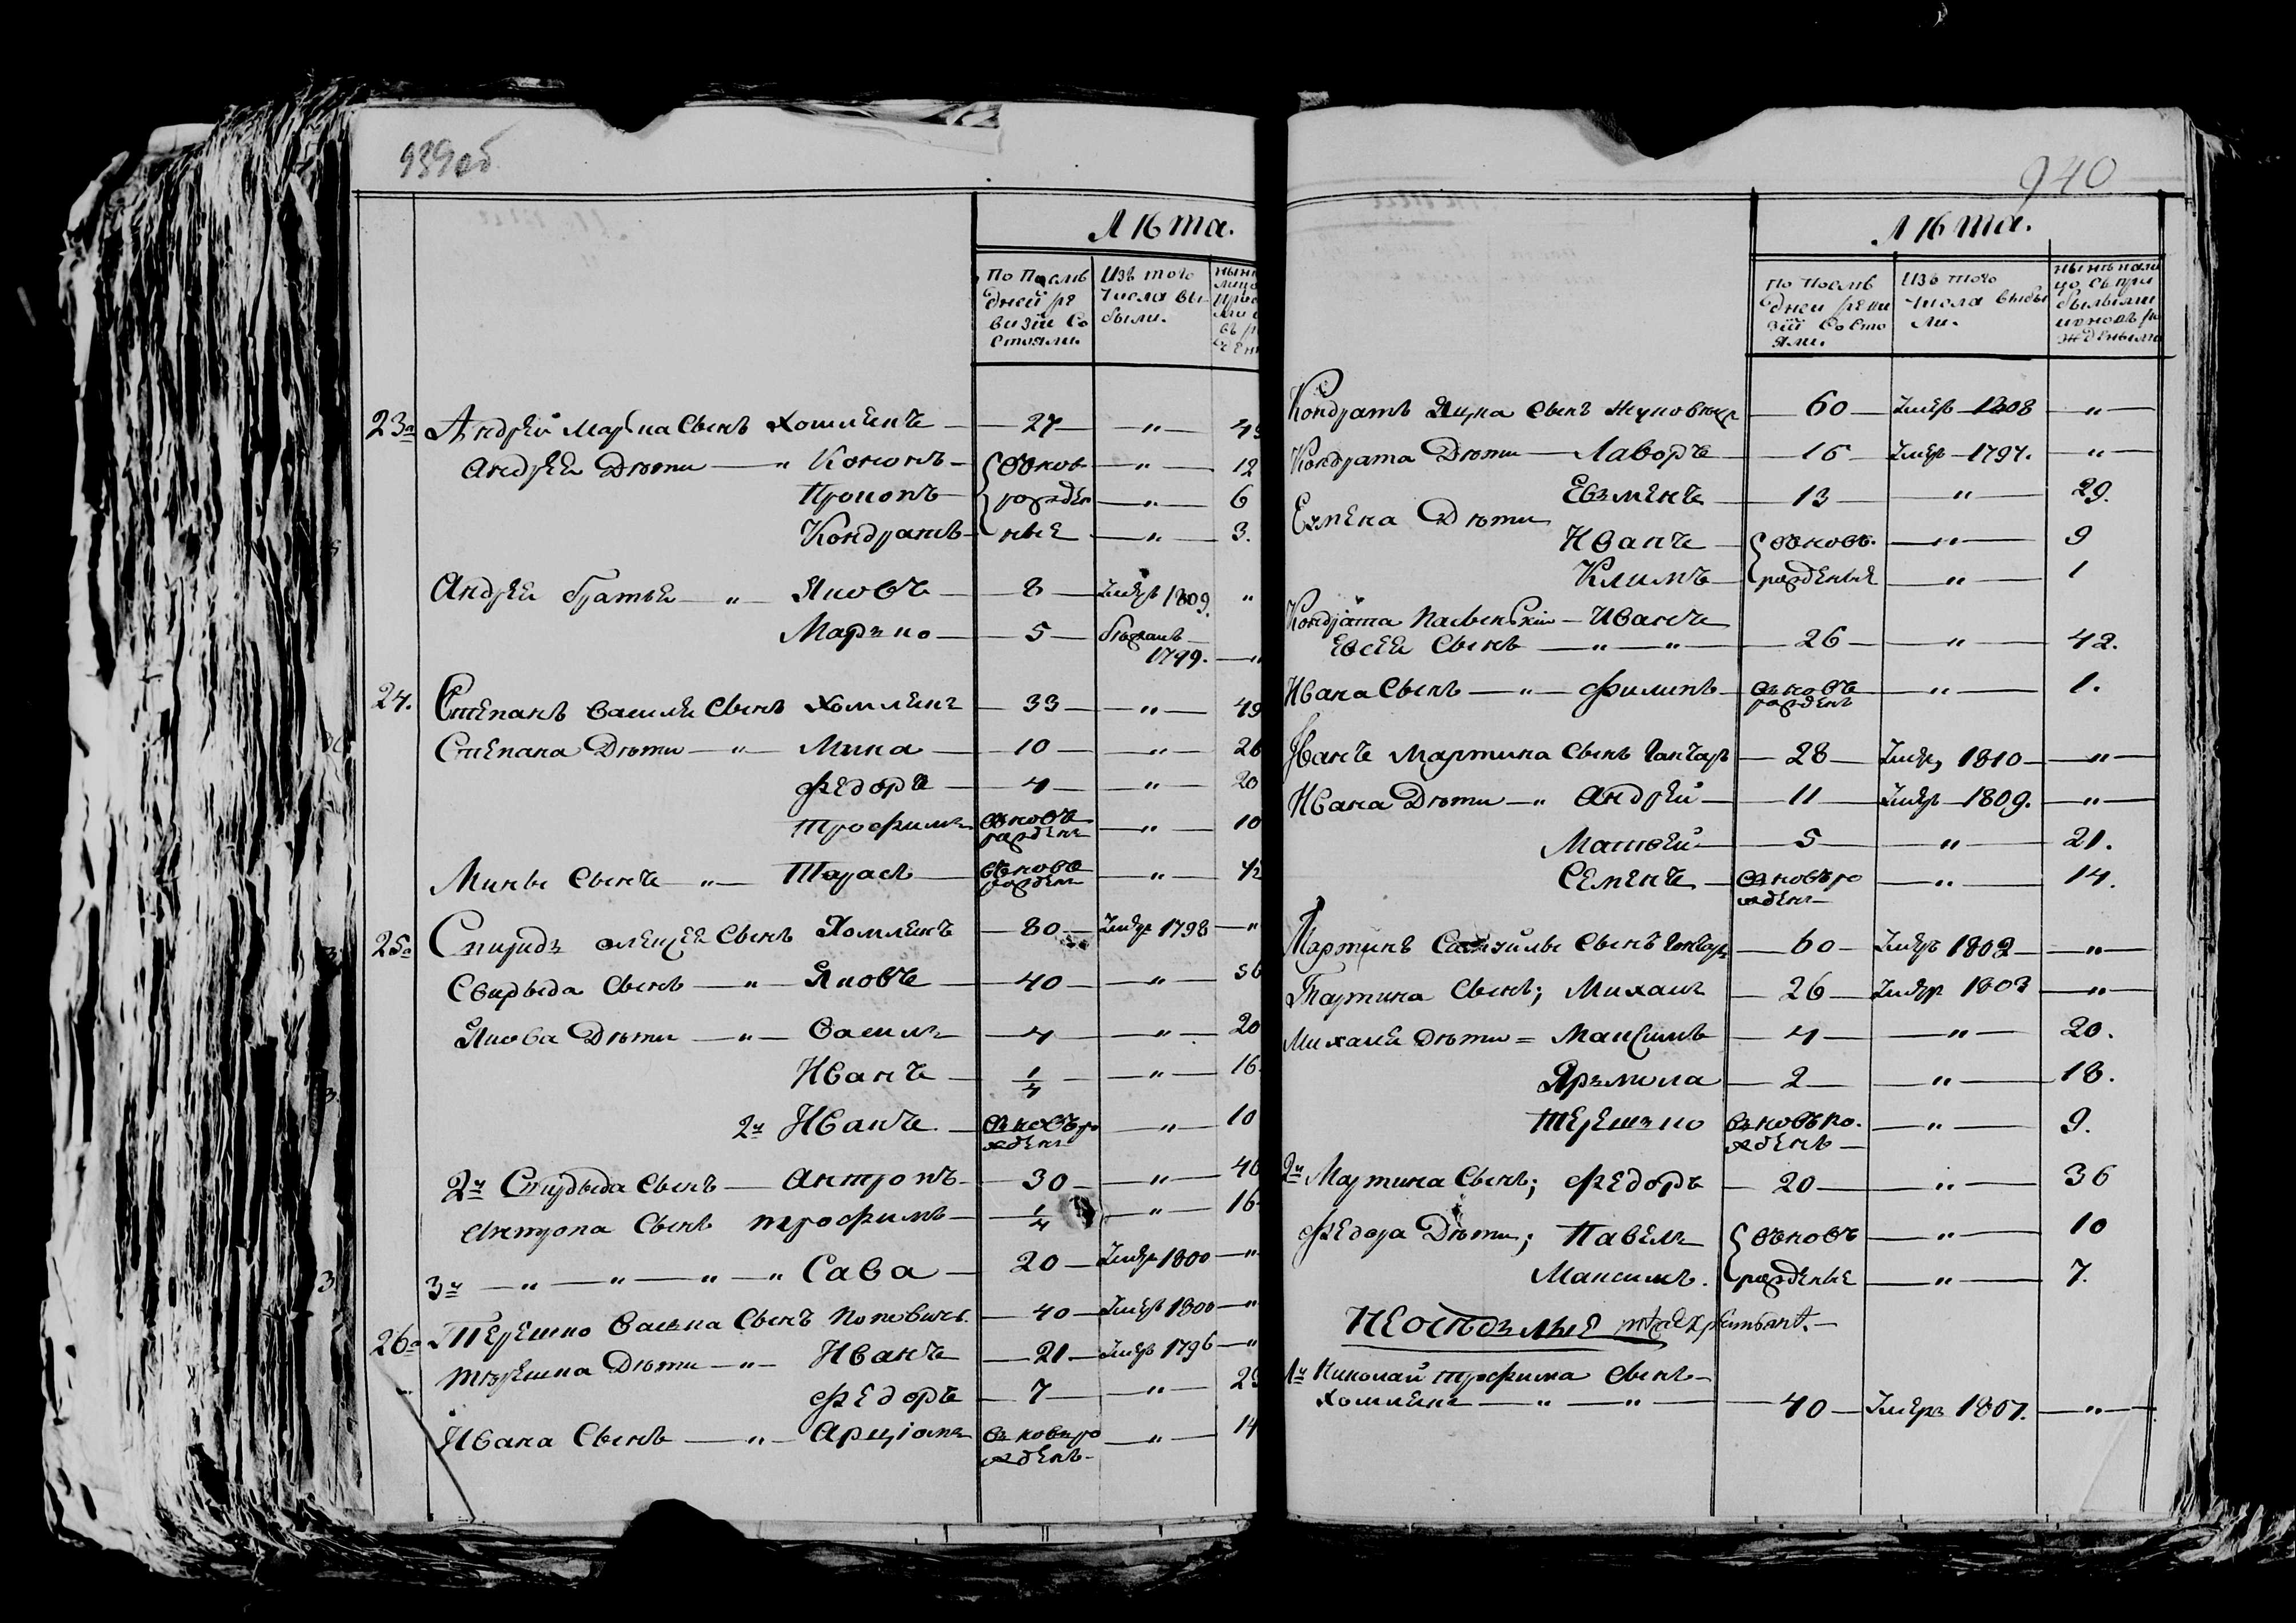 939об
Лѣта.
По послѣ
дней ре
визіи со
стояли
Изъ того
числа вы
были.
23. Андрей Марка сынъ Хомленъ — 27 — „ —
Андрея Дѣти — „ Кононъ — вънов — „ — 12
Прокопъ — рожден — „ — 6
Кондратъ — ные — „ — 3.
Андрея братья — „ — Яковъ — 8 — Умеръ 1809. „
Марко — 5 — бѣжалъ
1799. — „
24. Степанъ Василя сынъ Хомленъ — 33 — „ — 49
Степана Дѣти — „ — Мина — 10 — „ — 26
Федоръ — 4 — „ — 20
Трофимъ вновъ — „ — 10
рожденъ
Мины сынъ — „ — Тарасъ — вновъ — „ —
рожденъ
25. Спиридъ Алексея сынъ Хомленъ — 80 — Умеръ 1798 — „
Свирыда сынъ — „ — Яковъ — 40 — „ — 56
Якова Дѣти — „ — Василь — 4 — „ — 20
Иванъ — 1/4 — „ — 16
2й Иванъ — вновъ ро — „ — 10
жденъ
2й Спирыда сынъ — Антропъ — 30 — „ — 46
Антропа сынъ Трофимъ — 1/4 — „ — 16
3й — „ — „ — „ — „ Сава — 20 — Умеръ 1800 — „
26. Терешко Васька сынъ Поповичъ — 40 — Умеръ 1800 — „
Терешка Дѣти — „ — Иванъ — 21 — Умеръ 1796 — „
Федоръ — 7 — „ —
Ивана сынъ — „ — Арціомъ вновъ ро — „ — 14
жденъ —
940
Лѣта.
По послѣ
дней реви
зіи состо
яли.
Изъ того
числа выбы
ли.
нынѣ нали
цо съ при
былыми
и вновь ро
жденными
Кондратъ Яцка сынъ — 60 — Умеръ 1808 — „ —
Кондрата Дѣти — Лаворъ — 16 — Умеръ — 1797. — „ —
Евменъ — 13 — „ — 29.
Евмена Дѣти
Иванъ — вновъ. — „ — 9
Климъ — рожденые — „ — 1
Кондрата — Иванъ
Евсея сынъ — „ — „ — 26 — „ — 42.
Ивана сынъ — „ — Филипъ — вновъ — „ — 1.
рожденъ
Иванъ Мартина сынъ Ганчаръ — 28 — Умеръ 1810 — „ —
Ивана Дѣти — „ Андрей — 11 — Умеръ — 1809. — „ —
Матвей — 5 — „ — 21.
Семенъ — вновъ ро — „ — 14.
жденъ —
Мартинъ сынъ Ганчаръ — 60 — Умеръ 1802 — „ —
Мартина сынъ; Михаилъ — 26 — Умеръ 1803 — „ —
Михаила Дѣти = Максимъ — 4 — „ — 20.
Ярмола — 2 — „ — 18.
Терешко вновъ ро. — „ — 9.
жденъ —
2й Мартина сынъ; Федоръ — 20 — „ — 36
Федора Дѣти; Павелъ вновъ — „ — 10
Максимъ. рожденые — „ — 7.
Неосѣдлые
1й Николай Трофима сынъ —
Хомленъ — „ — „ — 40 — Умеръ 1807. — „ —